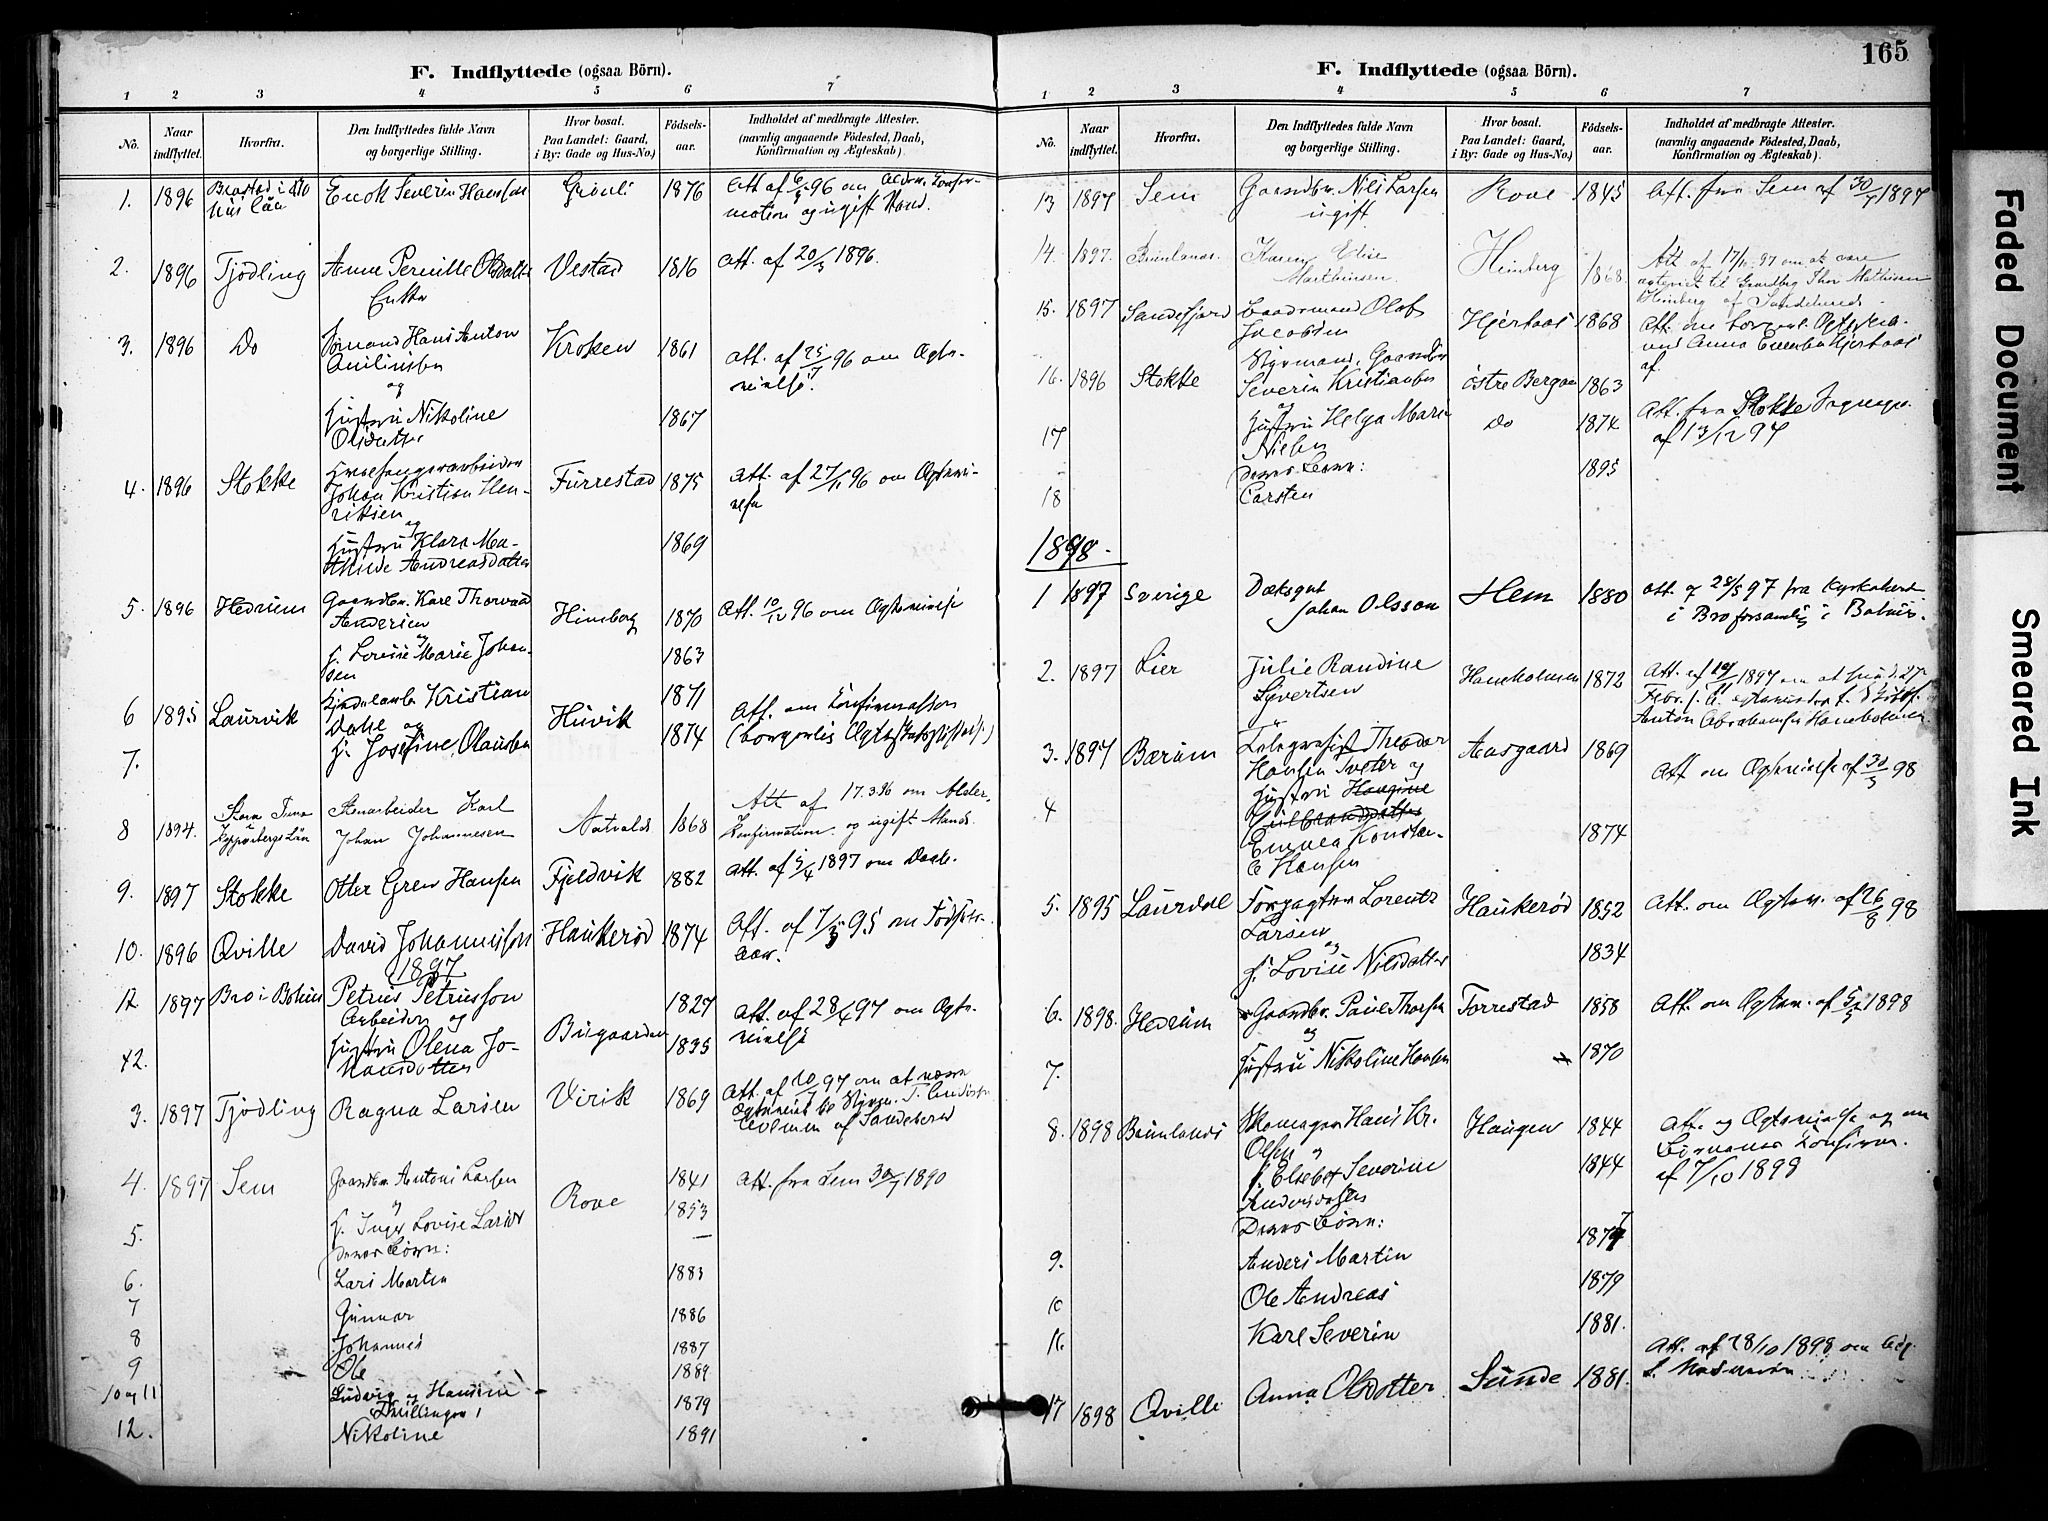 F. Indflyttede (ogsaa Börn).
1 2 3 4 5 6 7
No. Naar indflyttet. Hvorfra. Den Indflyttedes fulde Navn og borgerlige Stilling. Hvor bosat. Paa Landet: Gaard, i By: Gade og Hus-No.) Födselsaar. Indholdet af medbragte Attester. (navnlig angaaende Födested, Daab, Konfirmation og Ægteskab).
1. 1896 Enok Severin Hansson Grönli 1876 Att af 6/5 96 om Alder, Konfirmation og ugift Stand.
2. 1896 Tjödling Anne Pernille Olsdatter Vestad 1816 Att. af 20/3 1896.
Enke
3. 1896 Do Sömand Hans Anton Kroken 1861 Att. af 25/7 96 om Ægte-
og
Hustru Nikoline 1867
Olsdatter
4. 1896 Stokke Furrestad 1875 Att. af 27/11 96 om Ægtevi-
Johan Kristian Hen-
riksen
og
Hustru Klara Ma- 1869
thilde Andreasdatter
5. 1896 Hedrum Gaardbr. Karl Thorvald Himberg 1870 Att. 10/12 96 om Ægtevielse
Andersen
og
h. Lovise Marie Johan- 1863
sen
6 1895 Laurvik Kristian Huvik 1871 Att. om Konfirmation
Dahl og
7. h. Josefine Olausen 1874
8 1894. Stora Tuna Stenarbeider Karl 1868 Att af 17.3.96 om Alder,
Kopparbergs Län Johan Johannesen Konfirmation og ugift Stand.
9. 1897 Stokke Otter Gren Hansen Fjeldvik 1882 Att. af 5/4 1897 om Daab.
10. 1896 Qville David Johannesson Haukeröd 1874 Att. af 7/5 95 om Födsels-
aar.
1897
12 1897 Bro i Bohus Petrus Petrusson 1827 Att. af 28/4 97 om Ægte-
Arbeider og Bugaarden vielse
12. Hustru Olena Jo- 1835
hansdotter
3. 1897 Tjödling Ragna Larsen Virik 1869 Att. af 10/7 97 om at være
af Sandeherred
4. 1897 Sem Gaardbr. Anton Larsen Rove 1841 Att. fra Sem 30/7 1890
og
5. h. Inger Lovise Larsdt 1853
Deres Börn: —
6. Lars Martin 1883
7 Gunnar 1886
8 Johannes 1887
9 Ole 1889
10 og 11 Ludvig og Handine 1879
Tvillinger
12. Nikoline 1891
165
F. Indflyttede (ogsaa Börn).
1 2 3 4 5 6 7
No. Naar indflyttet. Hvorfra. Den Indflyttedes fulde Navn og borgerlige Stilling. Hvor bosat. Paa Landet: Gaard, i By: Gade og Hus-No.) Födselsaar. Indholdet af medbragte Attester. (navnlig angaaende Födested, Daab, Konfirmation og Ægteskab).
13 1897 Sem Gaardbr. Nils Larsen Rove 1845 Att. fra Sem af 30/7 1897
ugift
14. 1897. Brunlanæs. Karen Elise Himberg 1868. Att af 17/11 97 om at være
Marthinsen
Himberg af Sandeherred
15. 1897 Sandefjord Baadsmand Olof Hjertaas 1868 Att. om
Jacobsen
Styrmand, Gaardbr.
16. 1896 Stokke Severin Kristiansen Östre Bergan 1863
og
17 Hustru Helga Marie Do 1874 Att. fra Stokke
Nielsen af 13/12 97
Deres Barn: 1895
18 Carsten
1898.
1 1897 Sverige Dæksgut Hem 1880 Att. af 28/5 97 fra Kyrkoherd
Johan Olsson i Bro forsamling i Bohus.
2. 1897 Lier Julie Randine Haneholmen 1872
Syvertsen
Anton Abrahamsen Haneholmen
3. 1897 Bærum Telegrafist Theodor Aasgaard 1869 Att om Ægtevielse af 30/3 98
Hansen Tveter og
4 Hustru Haugine
1874
Emma Konstan-
ce Hansen
5. 1895 Laurdal Forpagter Lorents Haukeröd 1852 Att. om Ægtev. af 26/8 98
Larsen
og
h. Lovise Nilsdatter 1834
6. 1898. Hedrum Gaardbr. Paul Thorsen Torrestad 1858 Att om Ægtev. af 5/5 1898
og
7. Hustru Nikoline Hansen 1870
8. 1898 Brunlanæs Skomager Hans Kr. Haugen 1844 Att. og Ægtevielse og om
Olsen og Börnenes Konfirm.
h. Elsebet Severine 1844 af 7/10 1898
Andersdatter
Deres Börn:
9. Anders Martin 1877
10 Ole Andreas 1879
16 Karl Severin 1881.
17 1898 Qville Anna Olsdotter Sunde 1881. Att. af 28/10 1898 om
Faded Document
Smeared Ink